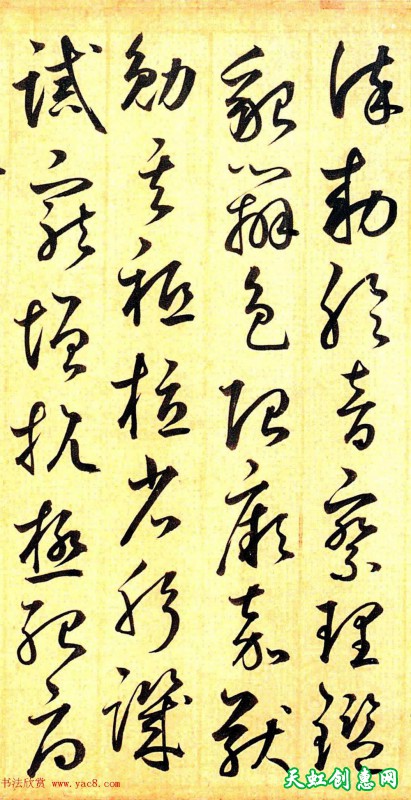 謹敕聆音察理鑑
貌辨色貽厥嘉猷
勉其祗植省躬譏
誡寵增抗極殆辱
书法欣赏 www.yac8.com
天虹创惠网